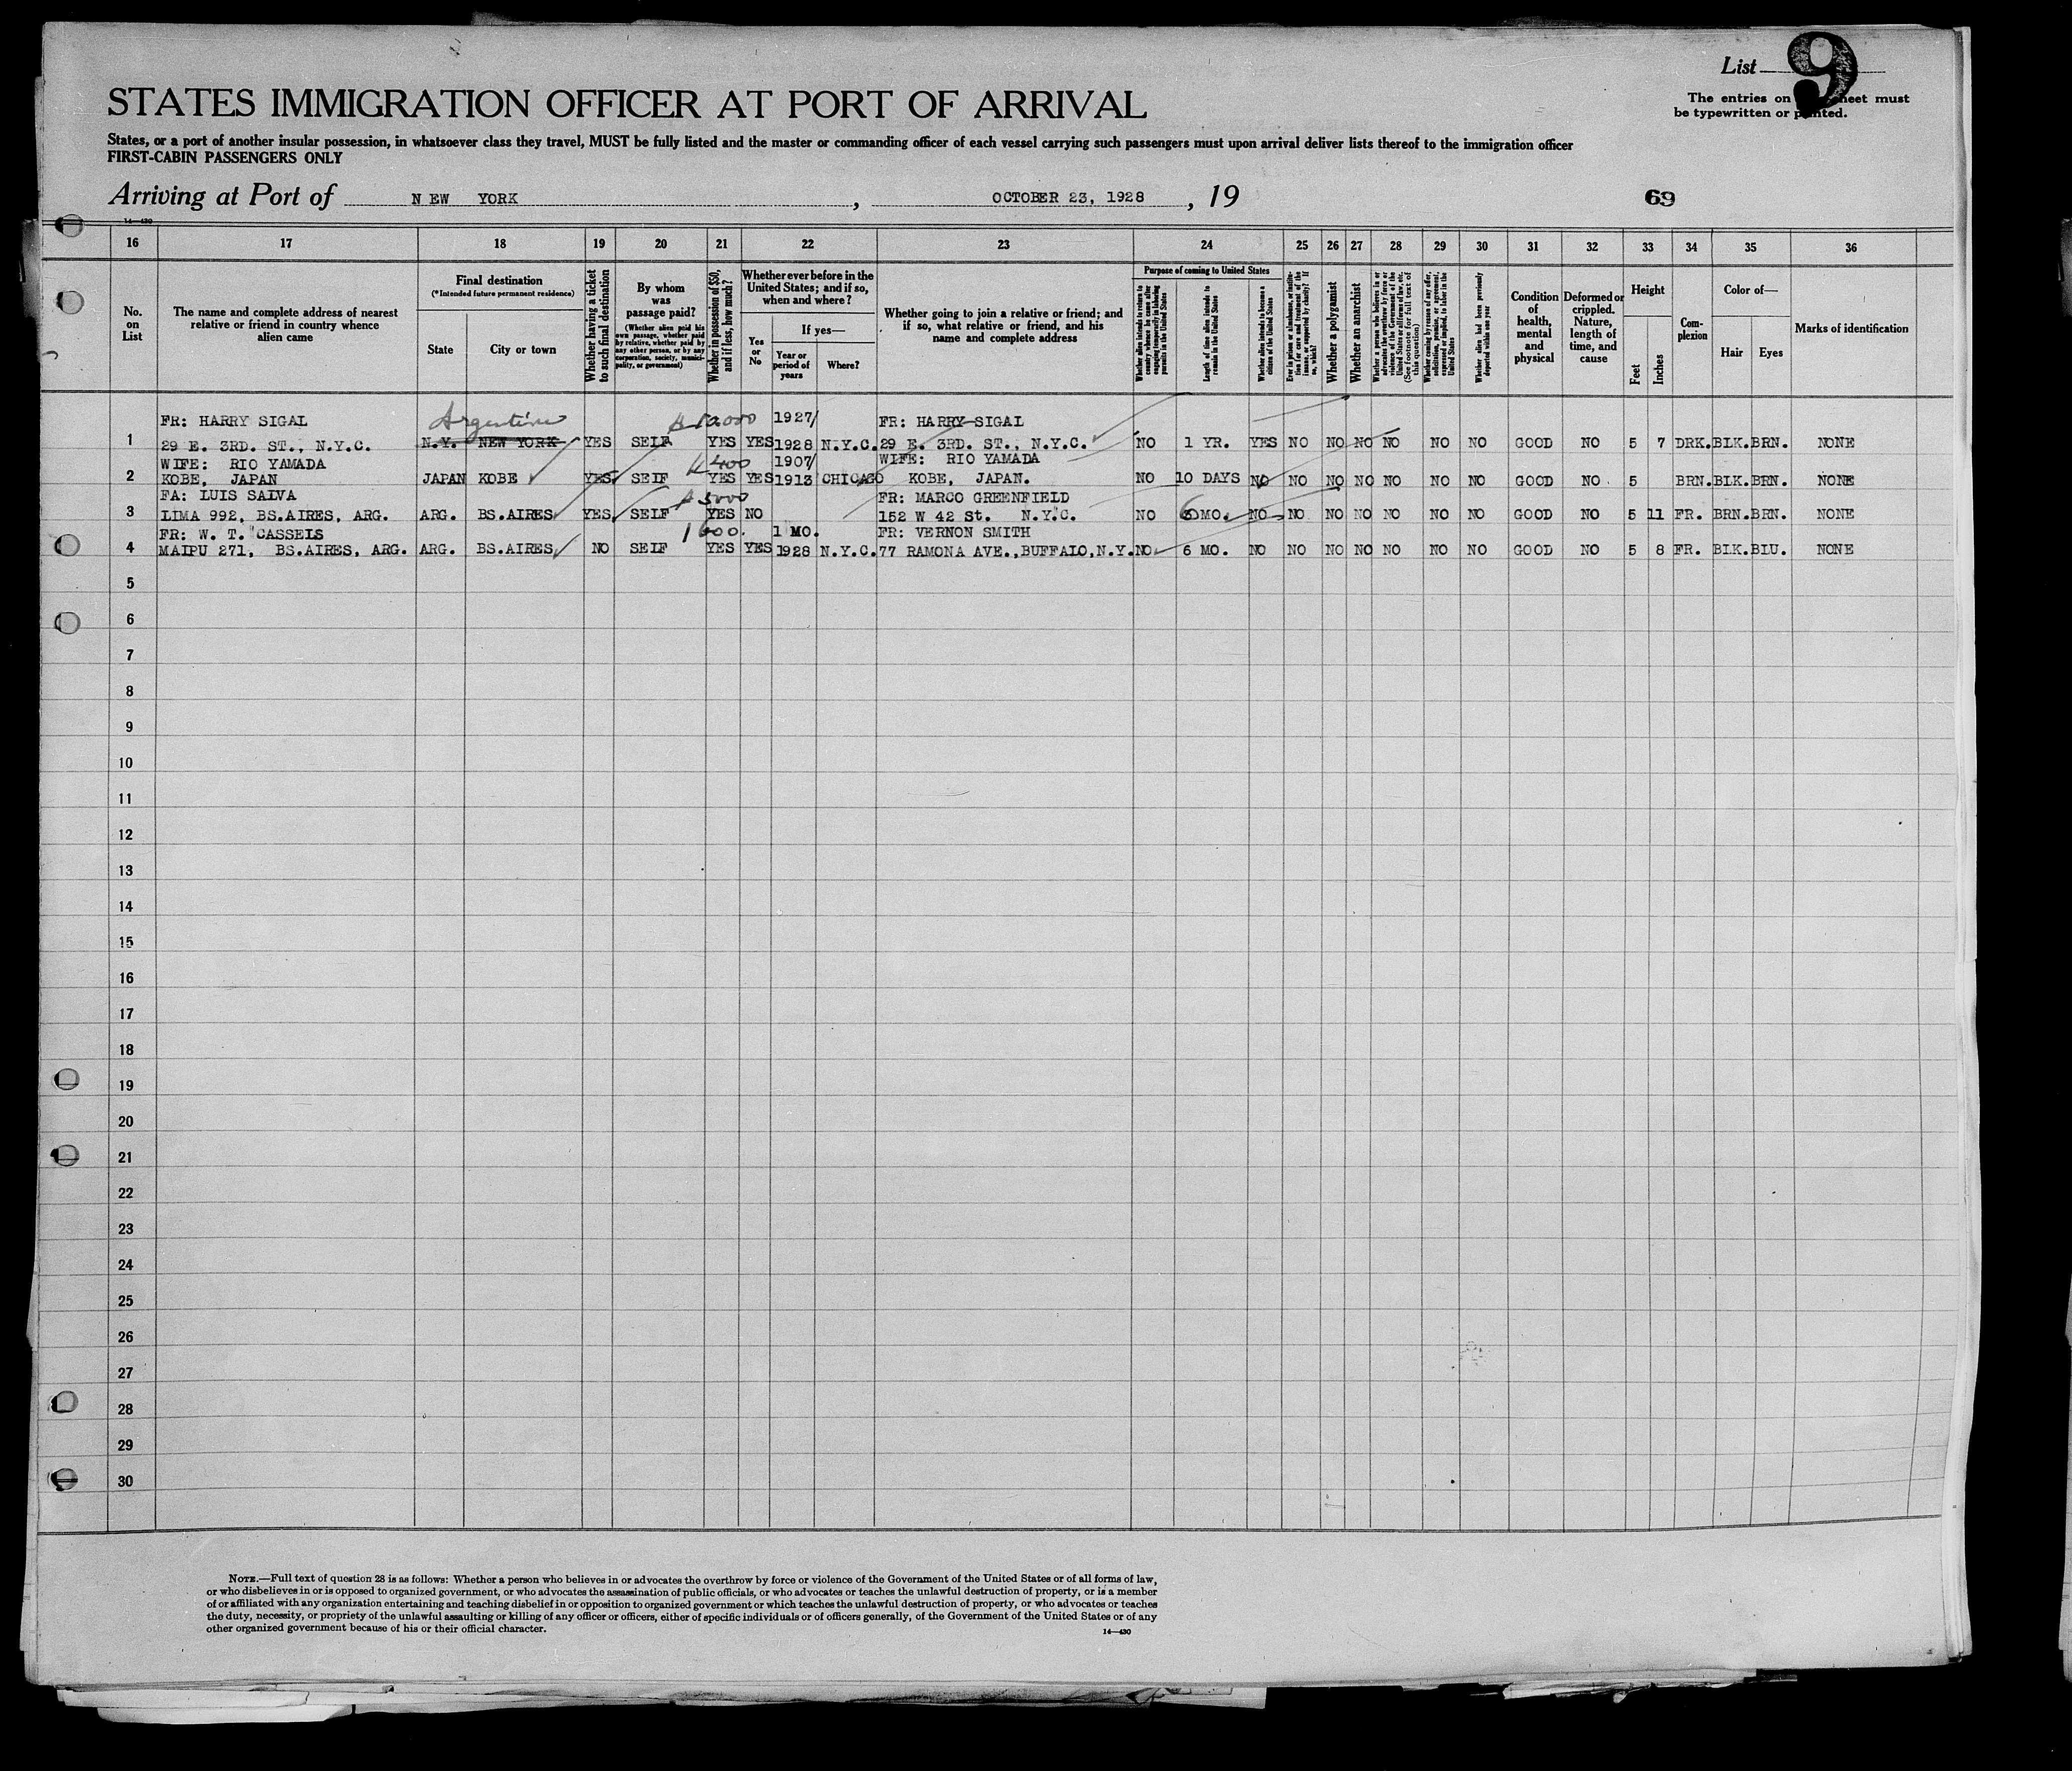 List 9
STATES IMMIGRATION OFFICER AT PORT OF ARRIVAL
The entries on sheet must
be typewritten or printed.
States, or a port of another insular possession, in whatsoever class they travel, MUST be fully listed and the master or commanding officer of each vessel carrying such passengers must upon arrival deliver lists thereof to the immigration officer
FIRST-CABIN PASSENGERS ONLY
Arriving at Port of NEW YORK, OCTOBER 23, 1928, 19
69
14—430
16 17 18 19 20 21 22 23 24 25 26 27 28 29 30 31 32 33 34 35 36
No. on List
The name and complete address of nearest relative or friend in country whence alien came
Final destination
(*Intended future permanent residence)
State
City or town
Whether having a ticket to such final destination
By whom was passage paid?
(Whether alien paid his own passage, whether paid by relative, whether paid by any other person, or by any corporation, society, municipality, or government)
Whether in possession of $50, and if less, how much?
Whether ever before in the United States; and if so, when and where?
Yes or No
If yes—
Year or period of years
Where?
Whether going to join a relative or friend; and if so, what relative or friend, and his name and complete address
Purpose of coming to United States
Whether alien intends to return to country whence he came after engaging temporarily in laboring pursuits in the United States
Length of time alien intends to remain in the United States
Whether alien intends to become a citizen of the United States
Ever in prison or almshouse, or institution for care and treatment of the insane, or supported by charity? If so, which?
Whether a polygamist
Whether an anarchist
(See footnote for full text of this question)
Whether alien had been previously deported within one year
Condition of health, mental and physical
Deformed or crippled. Nature, length of time, and cause
Height
Feet
Inches
Complexion
Color of—
Hair
Eyes
Marks of identification
FR: HARRY SIGAL Argentine 1927/ FR: HARRY SIGAL
1 29 E. 3RD. ST., N.Y.C. N.Y. NEW YORK YES SELF YES YES 1928 N.Y.C. 29 E. 3RD. ST., N.Y.C. NO 1 YR. YES NO NO NO NO NO NO GOOD NO 5 7 DRK. BLK. BRN. NONE
WIFE: RIO YAMADA 400 1907/ WIFE: RIO YAMADA
2 KOBE, JAPAN JAPAN KOBE YES SELF YES YES 1913 CHICAGO KOBE, JAPAN. NO 10 DAYS NO NO NO NO NO NO NO GOOD NO 5 BRN. BLK. BRN. NONE
FA: LUIS SALVA 5000 FR: MARCO GREENFIELD
3 LIMA 992, BS.AIRES, ARG. ARG. BS.AIRES YES SELF YES NO 152 W 42 St. N.Y.C. NO 6 MO. NO NO NO NO NO NO NO GOOD NO 5 11 FR. BRN. BRN. NONE
FR: W. T. CASSELS 1600. 1 MO. FR: VERNON SMITH
4 MAIPU 271, BS.AIRES, ARG. ARG. BS.AIRES NO SELF YES YES 1928 N.Y.C. 77 RAMONA AVE., BUFFALO, N.Y. NO 6 MO. NO NO NO NO NO NO NO GOOD NO 5 8 FR. BLK. BLU. NONE
5
6
7
8
9
10
11
12
13
14
15
16
17
18
19
20
21
22
23
24
25
26
27
28
29
30
NOTE.—Full text of question 28 is as follows: Whether a person who believes in or advocates the overthrow by force or violence of the Government of the United States or of all forms of law,
or who disbelieves in or is opposed to organized government, or who advocates the assassination of public officials, or who advocates or teaches the unlawful destruction of property, or is a member
of or affiliated with any organization entertaining and teaching disbelief in or opposition to organized government or which teaches the unlawful destruction of property, or who advocates or teaches
the duty, necessity, or propriety of the unlawful assaulting or killing of any officer or officers, either of specific individuals or of officers generally, of the Government of the United States or of any
other organized government because of his or their official character.
14—430